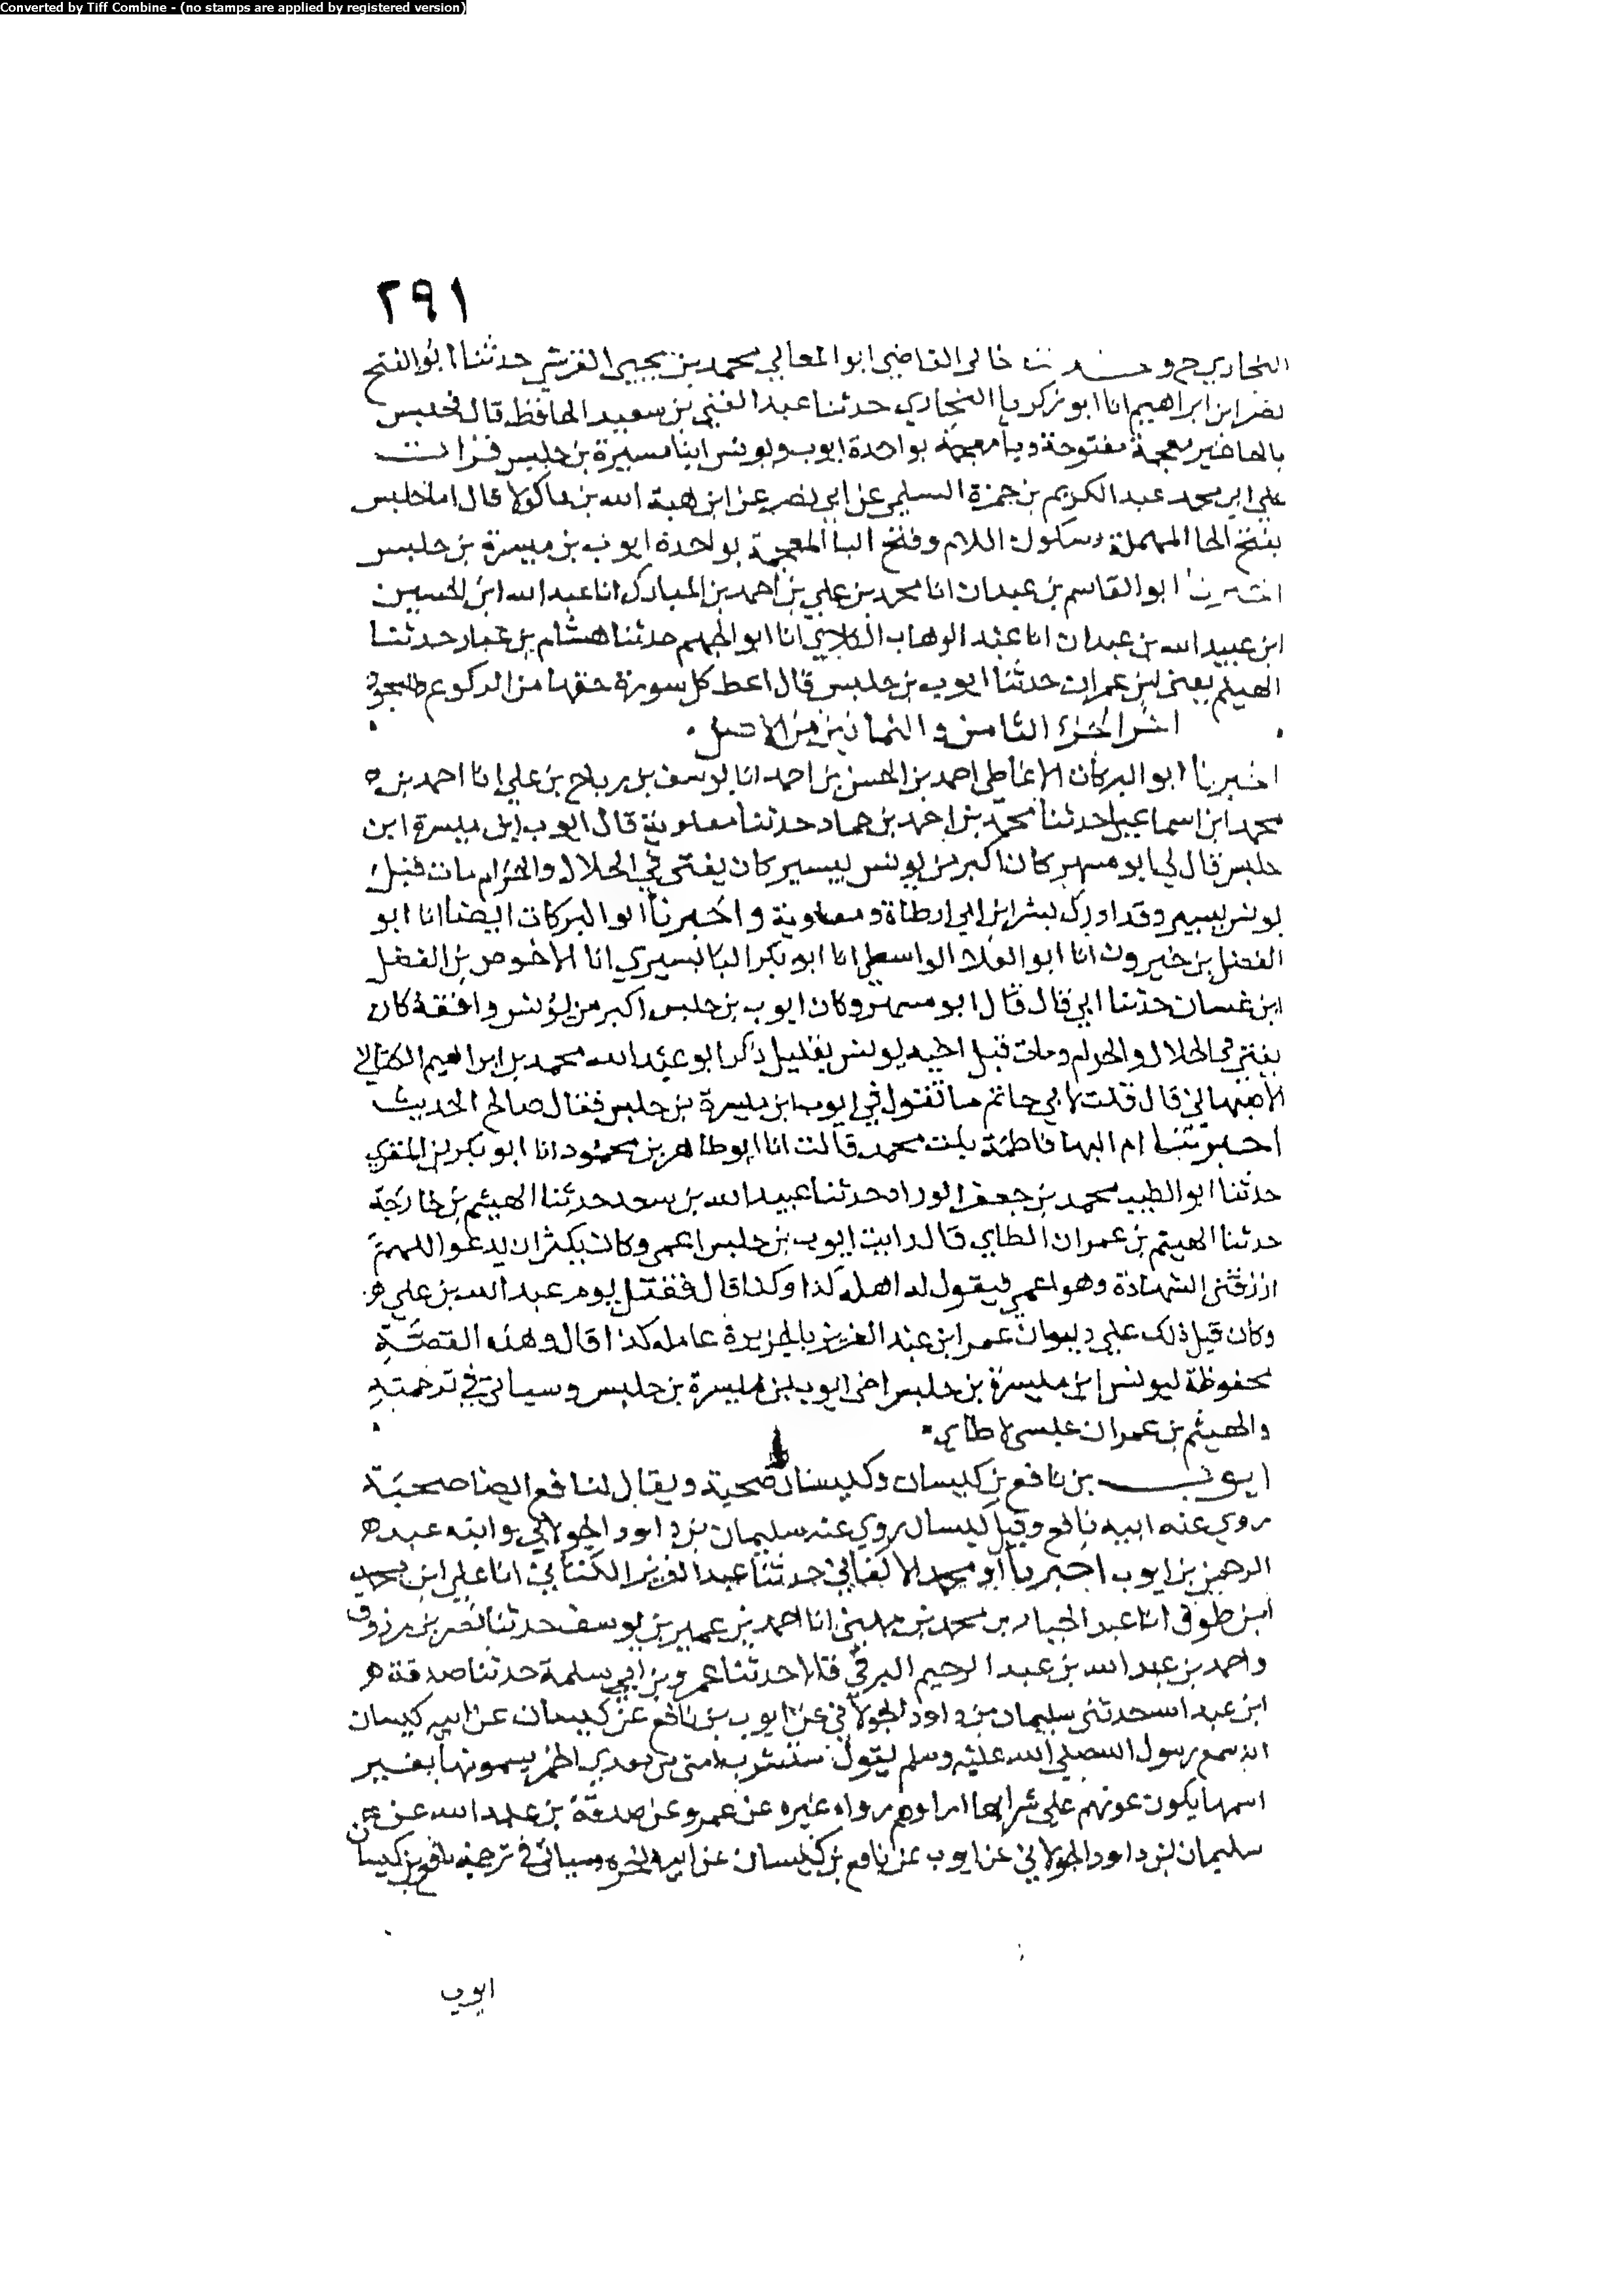 Converted by Tiff Combine - (no stamps are applied by registered version)
٢٩١
البخاري ح وحدثنا خالي القاضي ابو المعالي محمد بن يحيى القرشي حدثنا ابو الفتح
نصر ابن ابراهيم انا ابو زكريا البخاري حدثنا عبد الغني بن سعيد الحافظ قال فحلبس
بالحا غير معجمة مفتوحة وبا معجمة بواحدة ايوب ويونس ابنا مسيرة بن حلبس قرات
علي ابي محمد عبد الكريم بن حمزة السلمي عن ابي نصر عن ابن هبة الله بن ماكولا قال اما حلبس
بفتح الحا المهملة وسكون اللام وفتح البا المعجمة بواحدة ايوب بن ميسرة بن حلبس
ابو القاسم بن عبدان انا محمد بن علي بن احمد بن المبارك انا عبد الله ابن الحسين
ابن عبيد الله بن عبدان انا عبد الوهاب الكلابي انا ابو الجهم حدثنا هشام بن عمار حدثنا
الهيثم يعني ابن عمران حدثنا ايوب بن حلبس قال اعط كل سورة حقها من الركوع والسجود
اخر الجزء الثامن والثمانين من الاصل
اخبرنا ابو البركات الانماطي احمد بن الحسن بن احمد انا يوسف بن رباح بن علي انا احمد بن ه
محمد ابن اسماعيل حدثنا محمد بن احمد بن حماد حدثنا معاوية قال ايوب ابن ميسرة ابن
حلبس قال لي ابو مسهر كان اكبر من يونس بيسير كان يفتي في الحلال والحرام مات قبل
يونس بيسير وقد ادرك بسر ابن ابي ارطاة ومعاوية واخبرنا ابو البركات ايضا انا ابو
الفضل بن خيرون انا ابو العلا الواسطي انا ابو بكر البابسيري انا الاخوص بن الفضل
ابن غسان حدثنا ابي قال قال ابو مسهر وكان ايوب بن حلبس اكبر من يونس وافقه كان
يفتي في الحلال والحرام ومات قبل اخيه يونس بقليل ذكر ابو عبد الله محمد بن ابراهيم الكتاني
الاصبهاني قال قلت لابي حاتم ما تقول في ايوب ابن ميسرة بن حلبس فقال صالح الحديث
اخبرتنا ام البها فاطمة بنت محمد قالت انا ابو طاهر بن محمود انا ابو بكر بن المقري
حدثنا ابو الطيب محمد بن جعفر الوراد حدثنا عبيد الله بن سعد حدثنا الهيثم بن خارجة
حدثنا الهيثم بن عمران الطاي قال رايت ايوب بن حلبس اعمى وكان يكثر ان يدعو اللهم
ارزقني الشهادة وهو اعمى فيقول له اهله كذا وكذا قال فقتل يوم عبد الله بن علي ه
وكان قبل ذلك على ديوان عمر ابن عبد العزيز بالجزيرة عامله كذا قال وهذه القصة
محفوظة ليونس ابن ميسرة بن حلبس اخي ايوب بن ميسرة بن حلبس وسياتي في ترجمته
والهيثم بن عمران عبسي لا طاي
ايوب بن نافع بن كيسان وكيسان صحبة ويقال لنافع ايضا صحبة
روي عنه ابيه نافع وقيل كيسان روي عنه سليمان بن داود الخولاني وابنه عبد ه
الرحمن بن ايوب اخبرنا ابو محمد الاكفاني حدثنا عبد العزيز الكتاني انا علي ابن محمد
ابن طوق انا عبد الجبار بن محمد بن مهني انا احمد بن عمير بن يوسف حدثنا نصر بن مرزوق
واحمد بن عبد الله بن عبد الرحيم البرقي قالا حدثنا عمرو بن ابي سلمة حدثنا صدقة ه
ابن عبد الله حدثني سليمان بن داود الخولاني عن ايوب بن نافع عن كيسان عن ابيه كيسان
انه سمع رسول الله صلى الله عليه وسلم يقول ستشرب امتي من بعدي الخمر يسمونها بغير
اسمها يكون عونهم على شرابها امراوهم رواه غيره عن عمرو عن صدقة بن عبد الله عن
سليمان بن داود الخولاني عن ايوب عن نافع بن كيسان عن ابيه وسياتي في ترجمة نافع بن كيسان
ايوب